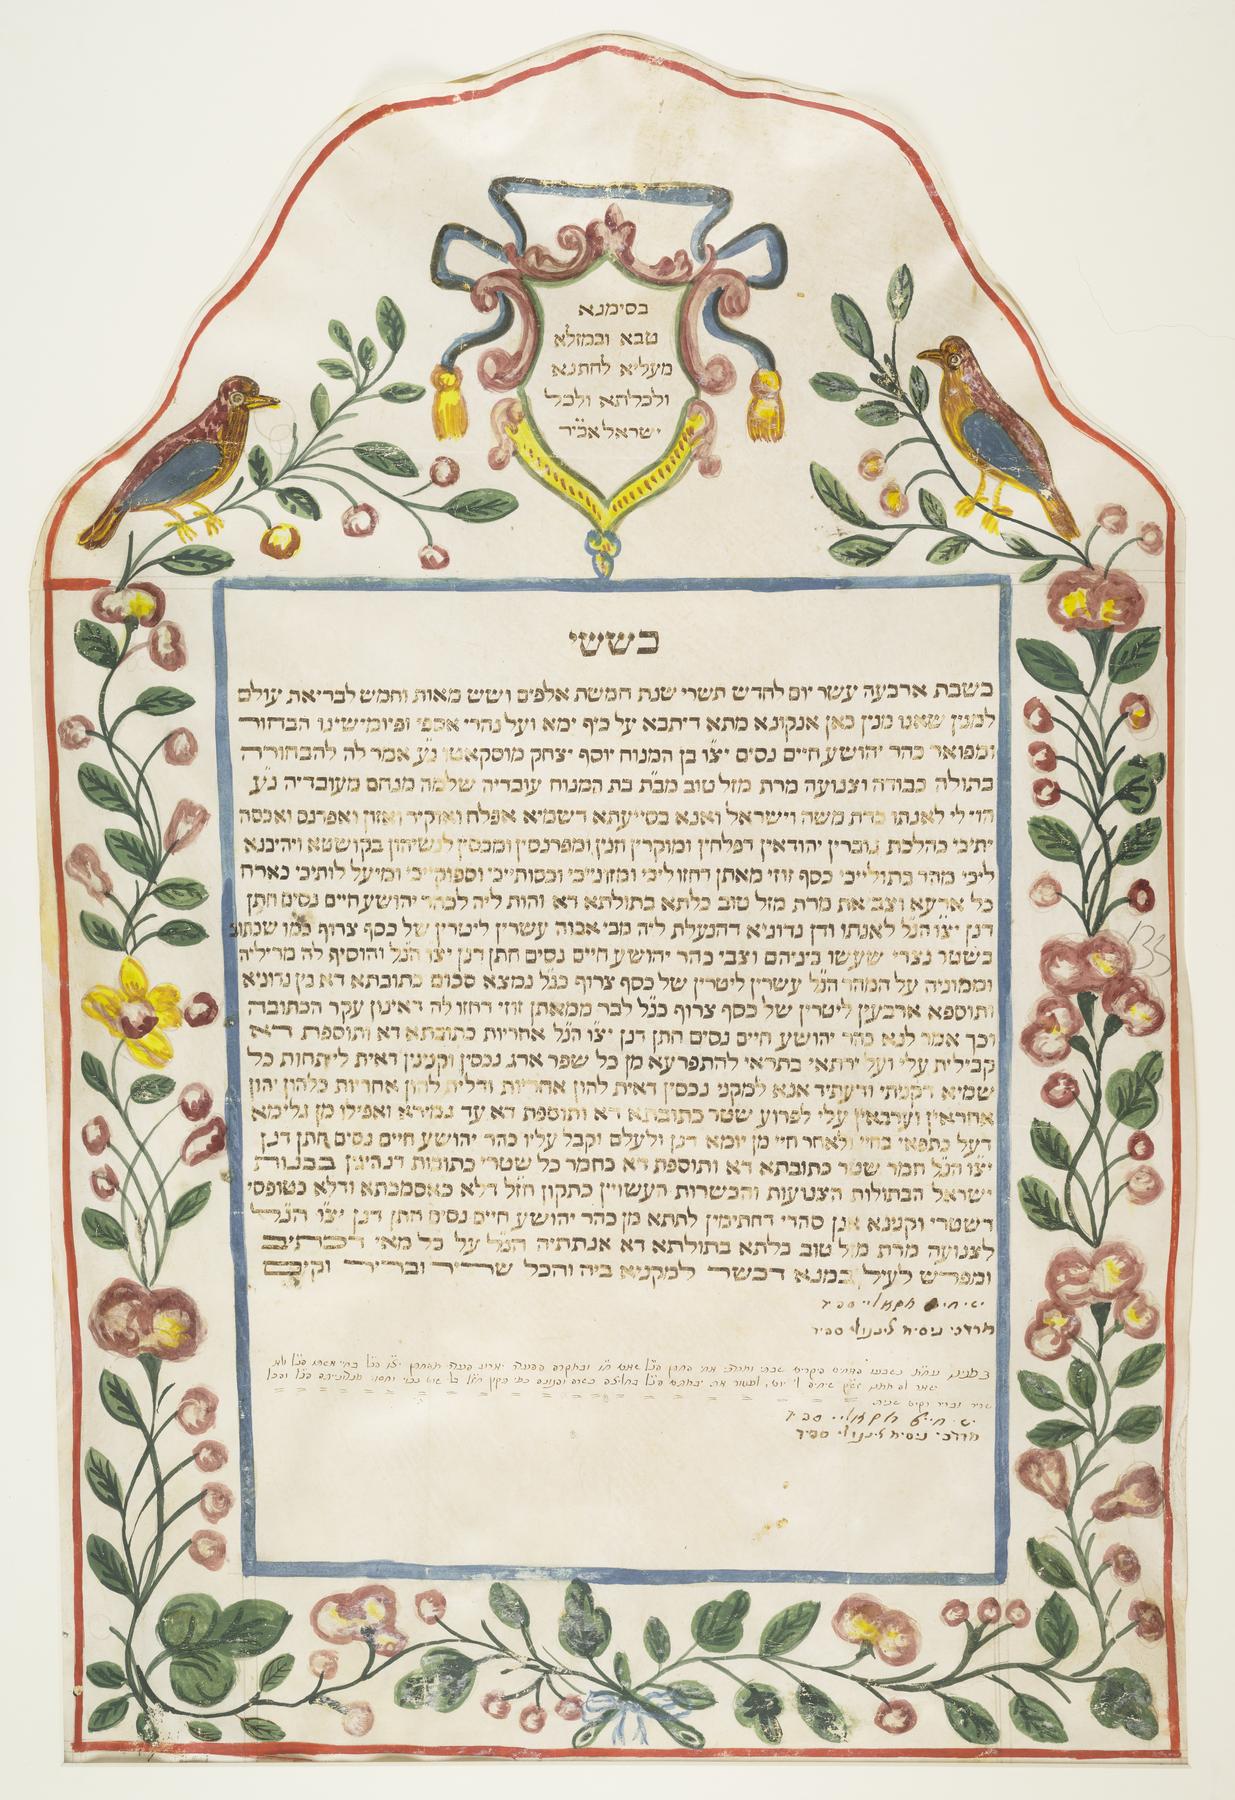 בסימנא
טבא ובמזלא
מעליא לחתנא
ולכלתא ולכל
ישראל אכי״ר
בששי
בשבת ארבעה עשר יום לחדש תשרי שנת חמשת אלפים ושש מאות וחמש לבריאת עולם
למנין שאנו מנין כאן אנקונא מתא דיתבא על כיף ימא ועל נהרי אספי ופיומישינו הבחור
ומפואר כהר יהושע חיים נסים יצ״ו בן המנוח יוסף יצחק מוסקאטו נ״ע אמר לה להבחורה
בתולה כבודה וצנועה מרת מזל טוב מב״ת בת המנוח עובדיה שלמה מנחם מעובדיה נ״ע
הוי לי לאנתו כדת משה וישראל ואנא בסייעתא דשמיא אפלח ואוקיר ואזון ואפרנס ואכסה
יתיכי כהלכת גוברין יהודאין דפלחין ומוקרין וזנין ומפרנסין ומכסין לנשיהון בקושטא ויהיבנא
ליכי מהר בתולייכי כסף זוזי מאתן דחזו ליכי ומזונייכי וכסותייכי וסיפוקייכי ומיעל לותיכי כארח
כל ארעא וצביאת מרת מזל טוב כלתא בתולתא דא והות ליה לכהר יהושע חיים נסים חתן
דנן יצ״ו הנ״ל לאנתו ודן נדוניא דהנעלת ליה מבי אבוה עשרין ליטרין של כסף צרוף כמו שכתוב
בשטר נצרי שעשו ביניהם וצבי כהר יהושע חיים נסים חתן דנן יצ״ו הנ״ל והוסיף לה מדיליה
וממוניה על המהר הנ״ל עשרין ליטרין של כסף צרוף כנ״ל נמצא סכום כתובתא דא בין נדוניא
ותוספא ארבעין ליטרין של כסף צרוף כנ״ל לבר ממאתן זוזי דחזו לה דאינון עקר הכתובה
וכך אמר לנא כהר יהושע חיים נסים חתן דנן יצ״ו הנ״ל אחריות כתובתא דא ותוספת דא
קבילית עלי ועל ירתאי בתראי להתפרעא מן כל שפר ארג נכסין וקנינין דאית לי תחות כל
שמיא דקניתי ודעתיד אנא למקני נכסין דאית להון אחריות ודלית להון אחריות כלהון יהון
אחראין וערבאין עלי לפרוע שטר כתובתא דא ותוספת דא עד גמירא ואפילו מן גלימא
דעל כתפאי בחיי ולאחר חיי מן יומא דנן ולעלם וקבל עליו כהר יהושע חיים נסים חתן דנן
יצ״ו הנ״ל חמר שטר כתובתא דא ותוספת דא כחמר כל שטרי כתובות דנהיגין בבנות
ישראל הבתולות הצנועות והכשרות העשויין כתקון חז״ל דלא כאסמכתא ודלא כטופסי
דשטרי וקנינא אנן סהדי דחתימין לתתא מן כהר יהושע חיים נסים חתן דנן יצ״ו הנ״ל
לצנועה מרת מזל טוב כלתא בתולתא דא אנתתיה הנ״ל על כל מאי דכתיב
ומפרש לעיל במנא דכשר למקניא ביה והכל שריר ובריר וקים
מרדכי ניסים
שריר ובריר וקים
מרדכי ניסים
133